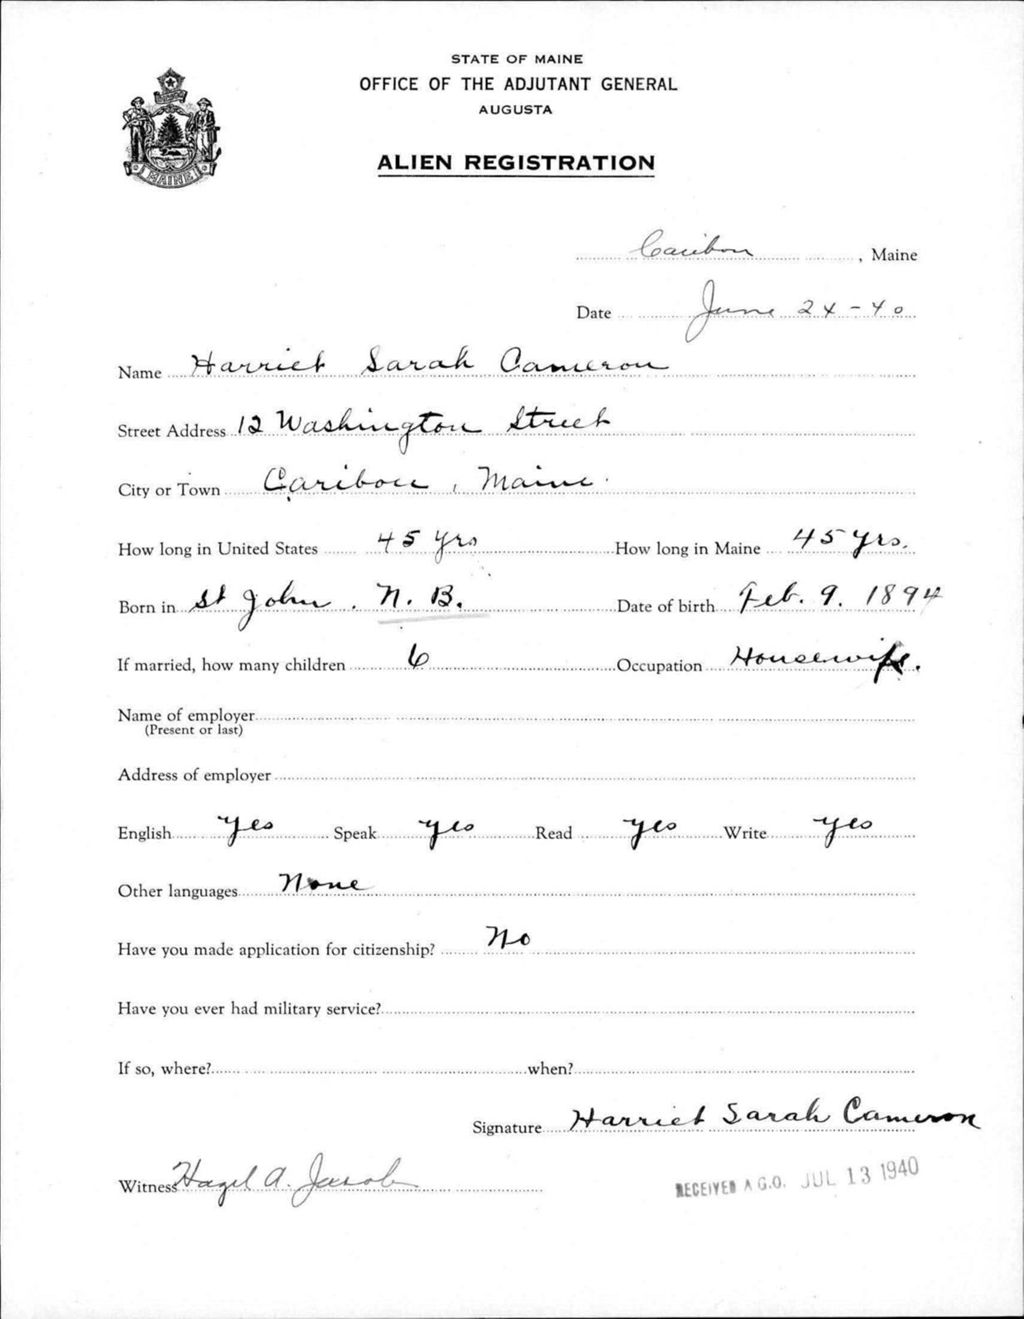 STATE OF MAINE
OFFICE OF THE ADJUTANT GENERAL
AUGUSTA
ALIEN REGISTRATION
MAINE
Caribou, Maine
Date June 24-40
Name Harriet Sarah Cameron
Street Address 12 Washington Street
City or Town Caribou, Maine.
How long in United States 45 yrs How long in Maine 45 yrs.
Born in St John. N. B. Date of birth Feb. 9. 1894
If married, how many children 6 Occupation Housewife.
Name of employer
(Present or last)
Address of employer
English yes Speak yes Read yes Write yes
Other languages None
Have you made application for citizenship? No
Have you ever had military service?
If so, where? when?
Signature Harriet Sarah Cameron
Witness Hazel A. Jacob
RECEIVED A.G.O. JUL 13 1940